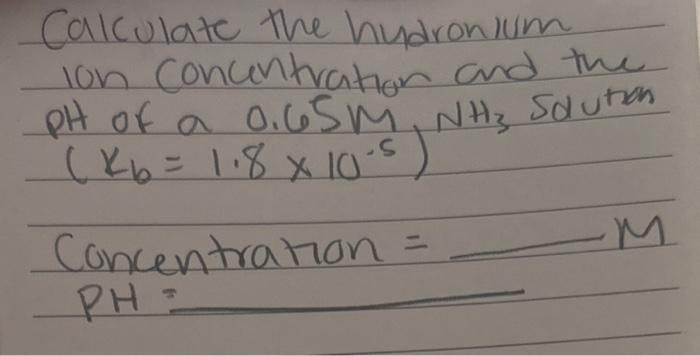 Calculate the hydronium
ion concentration and the
pH of a 0.65M NH₃ solution
(Kb = 1.8 × 10⁻⁵)
Concentration = ______ M
PH = ______